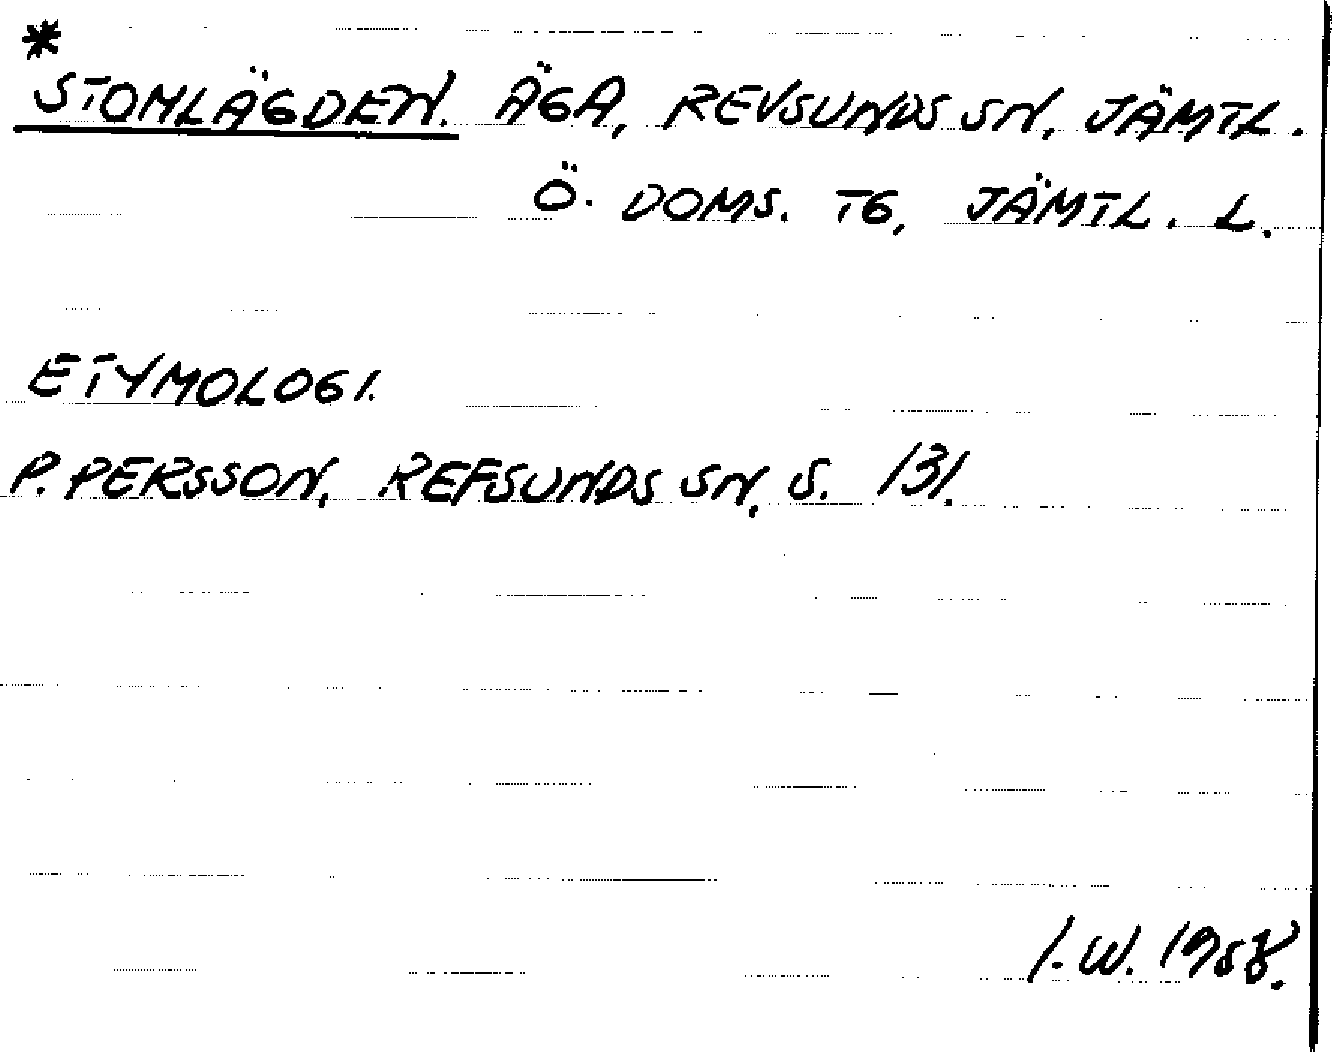 *
STOMLÄGDEN. ÄGA, REVSUNDS SN, JÄMTL.
Ö. DOMS. TG, JÄMTL. L.
ETYMOLOGI.
P. PERSSON, REFSUNDS SN, S. 131.
I.W. 1958.